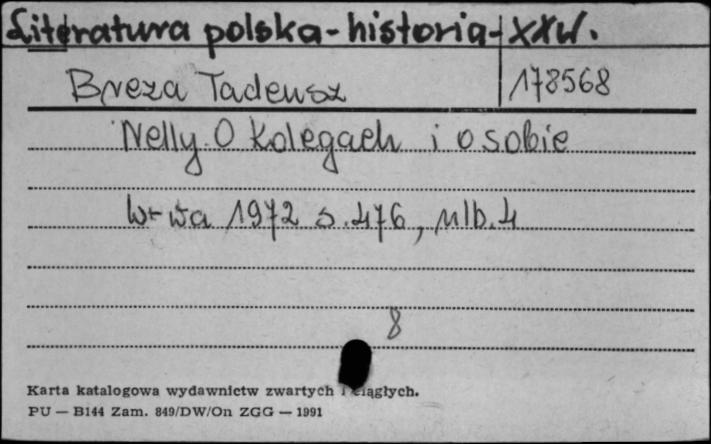 Literatura polska-historia-XXw.
Breza Tadeusz 178568
Nelly. O kolegach i o sobie
W-wa 1972 s.476, nlb.4
8
Karta katalogowa wydawnictw zwartych i ciągłych.
PU — B144 Zam. 849/DW/On ZGG — 1991